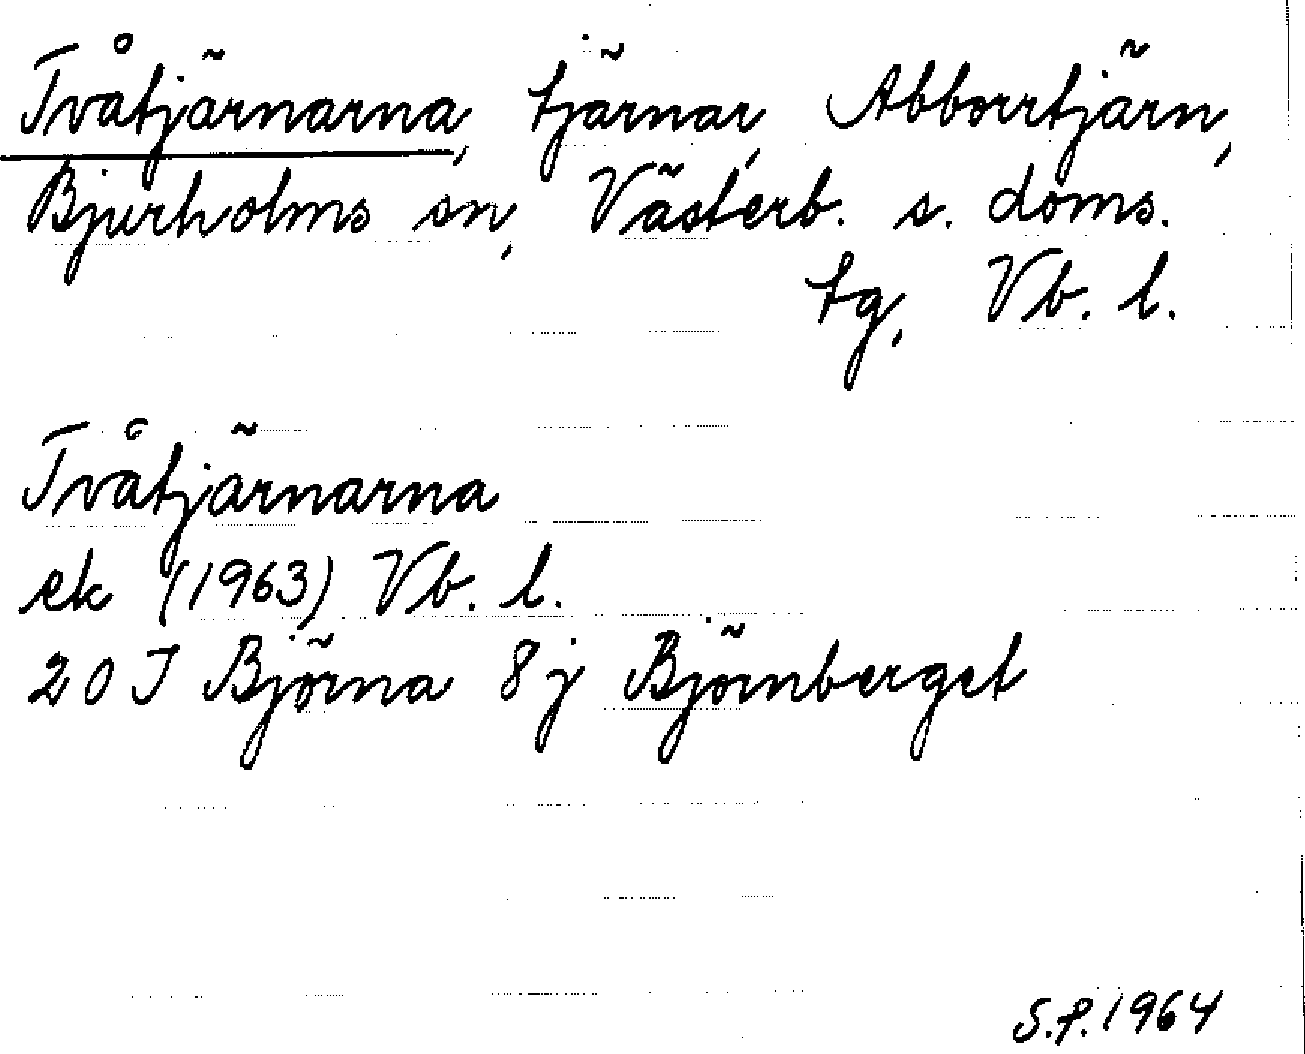 Tvåtjärnarna, tjärnar, Abborrtjärn,
Bjurholms sn, Västerb. s. doms.
tg, Vb. l.
Tvåtjärnarna
ek (1963) Vb. l.
20 J Björna 8j Björnberget
S.P. 1964